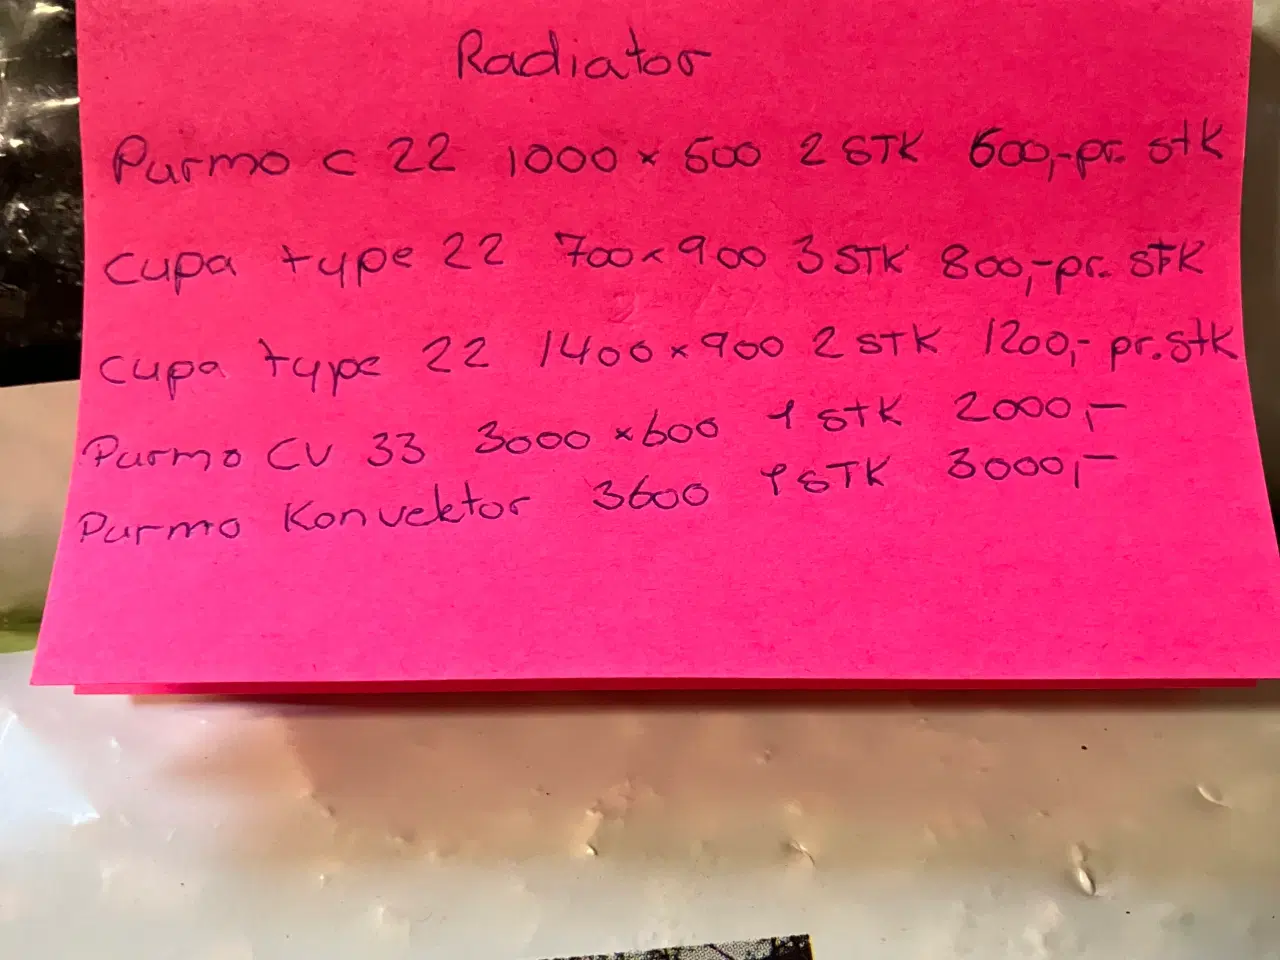 Radiator
Purmo C 22 1000 x 500 2 STK 600,- pr. stk
Cupa type 22 700 x 900 3 STK 800,- pr. STK
Cupa type 22 1400 x 900 2 STK 1200,- pr. stk
Purmo CV 33 3000 x 600 1 STK 2000,-
Purmo Konvektor 3600 1 STK 3000,-